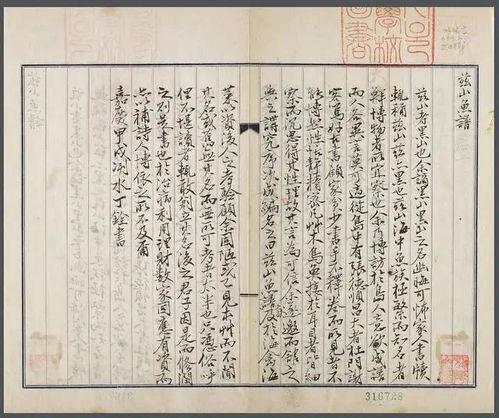 茲山魚譜
茲山者黑山也余謫黑山黑山之名幽晦可怖家人書牘
輒稱茲山茲亦黑也茲山海中魚族極繁而知名者
鮮博物者所宜察也余乃博訪於島人意欲成譜
而人各異言莫可適從島中有張德順昌大者杜門謝
客篤好古書顧家貧少書手不釋卷而所見者不
能博然性恬靜精密凡艸木鳥魚接於耳目者皆細
察而沈思得其性理故其言為可信余遂邀而館之
與之講究序次成編名之曰茲山魚譜旁及於海禽海
菜以資後人之考驗顧余固陋或已見本艸而不聞
其名或舊無其名而無所可考者太半也只憑俗呼
俚不堪讀者輒敢創立其名後之君子因是而修潤
之則是書也於治病利用理財數家固應有資而
亦以補詩人博依之所不及爾
嘉慶甲戌洌水丁銓著
316728